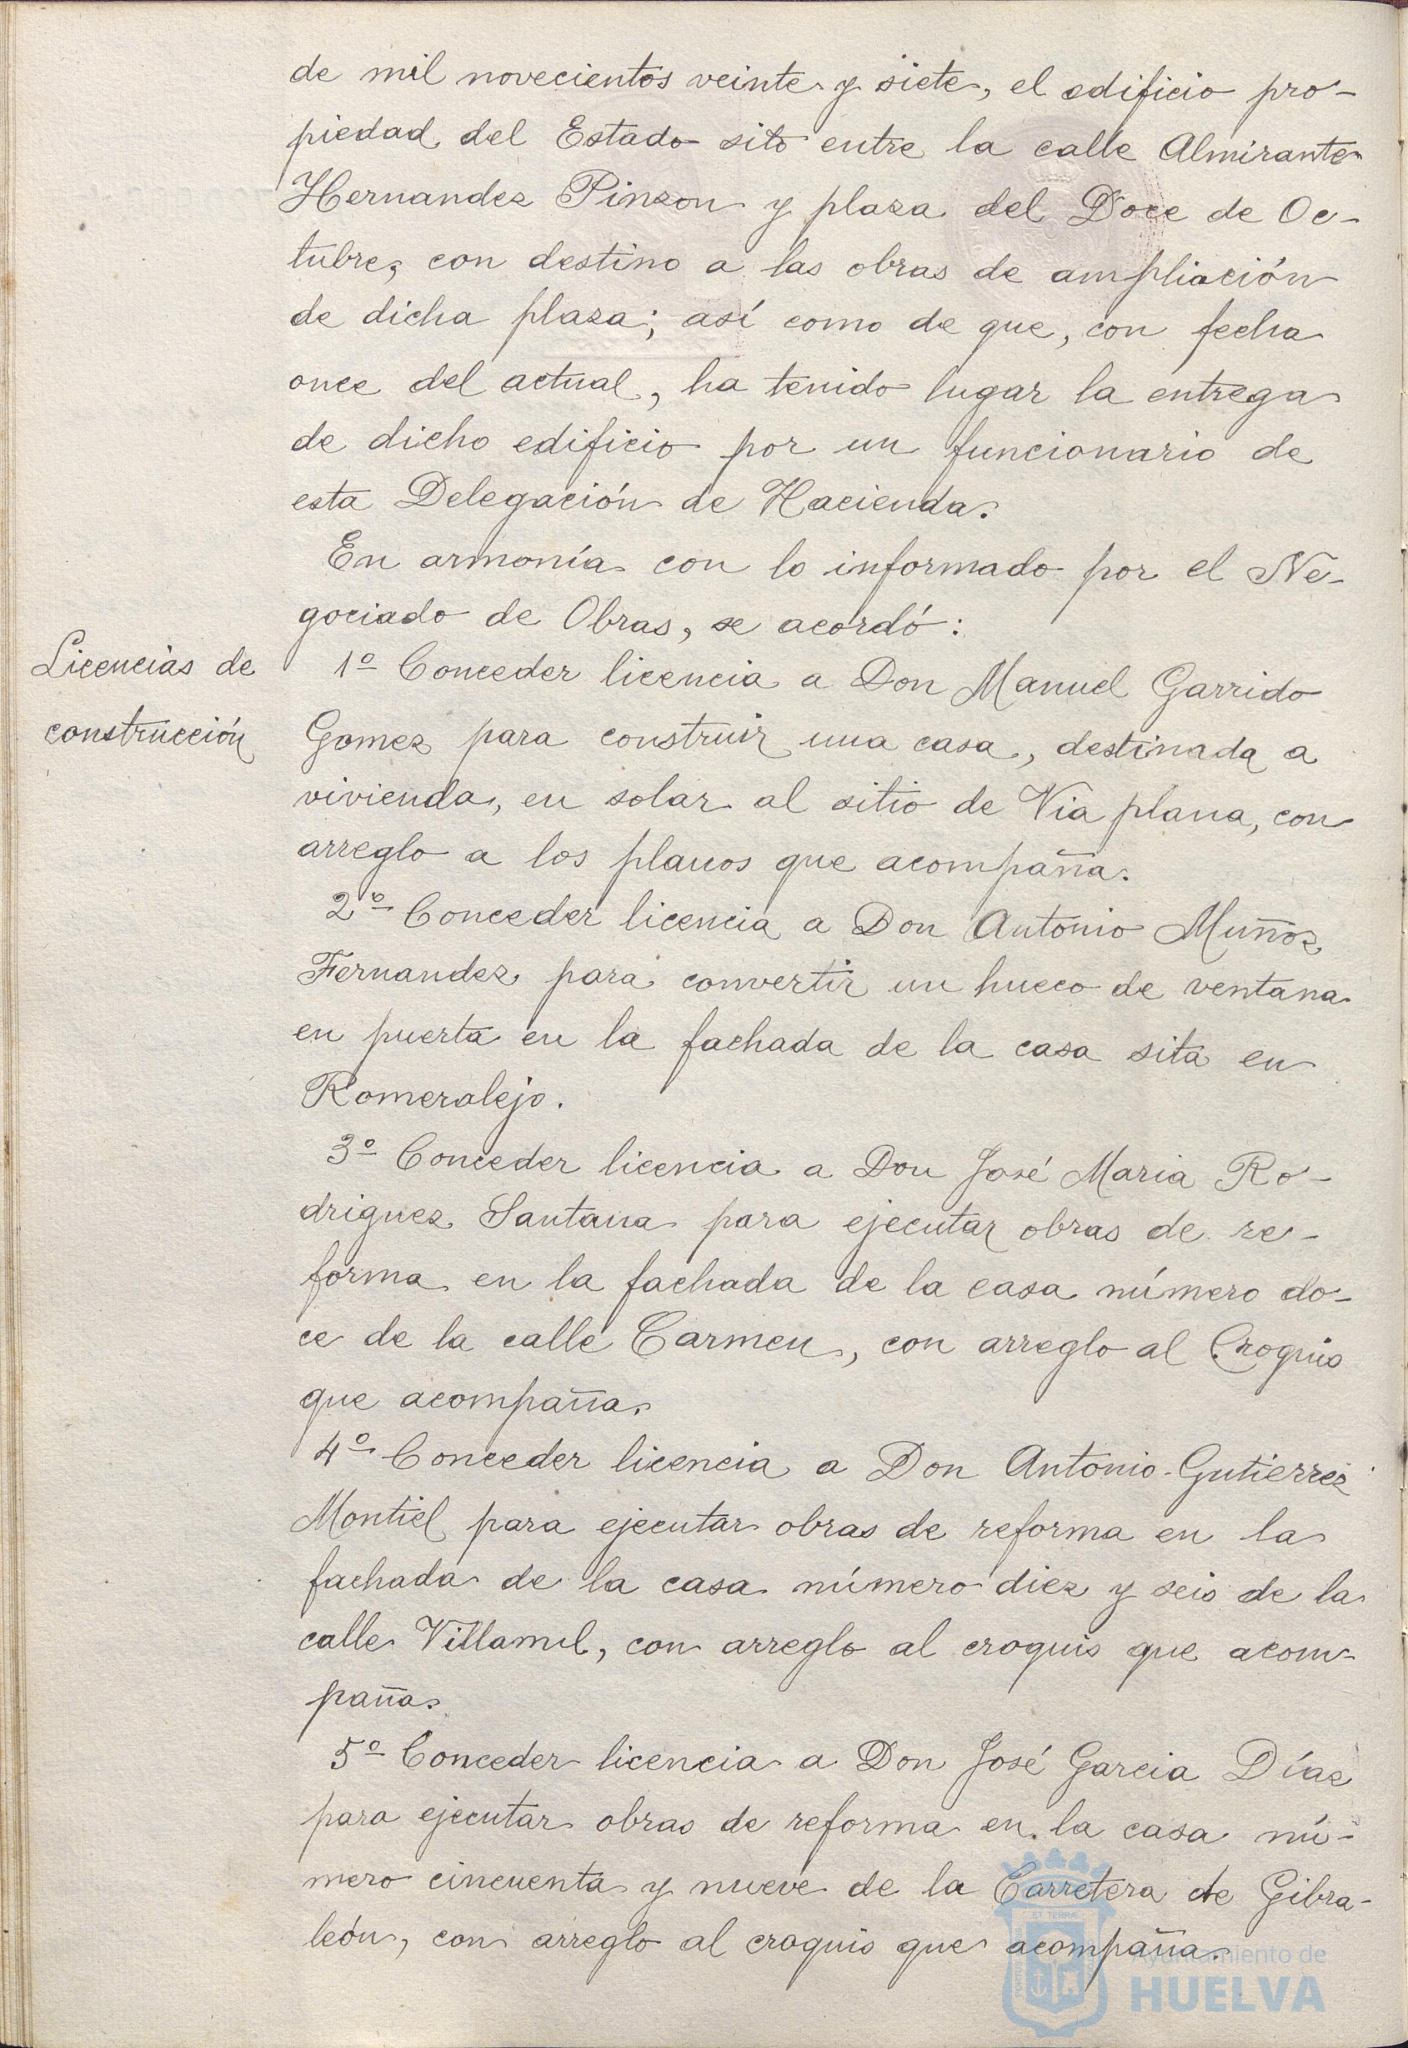 de mil novecientos veinte y siete, el edificio pro-
piedad del Estado sito entre la calle Almirante
Hernandez Pinzon y plaza del Doce de Oc-
tubre, con destino a las obras de ampliación
de dicha plaza; así como de que, con fecha
once del actual, ha tenido lugar la entrega
de dicho edificio por un funcionario de
esta Delegación de Hacienda.
En armonía con lo informado por el Ne-
gociado de Obras, se acordó:
Licencias de
construcción
1º Conceder licencia a Don Manuel Garrido
Gomez para construir una casa, destinada a
vivienda, en solar al sitio de Via plana, con
arreglo a los planos que acompaña.
2º Conceder licencia a Don Antonio Muñoz
Fernandez para convertir un hueco de ventana
en puerta en la fachada de la casa sita en
Romeralejo.
3º Conceder licencia a Don José Maria Ro-
driguez Santana para ejecutar obras de re-
forma en la fachada de la casa número do-
ce de la calle Carmen, con arreglo al Croquis
que acompaña.
4º Conceder licencia a Don Antonio Gutierrez
Montiel para ejecutar obras de reforma en la
fachada de la casa número diez y seis de la
calle Villamil, con arreglo al croquis que acom-
paña.
5º Conceder licencia a Don José Garcia Díaz
para ejecutar obras de reforma en la casa nú-
mero cincuenta y nueve de la Carretera de Gibra-
león, con arreglo al croquis que acompaña.
Ayuntamiento de
HUELVA